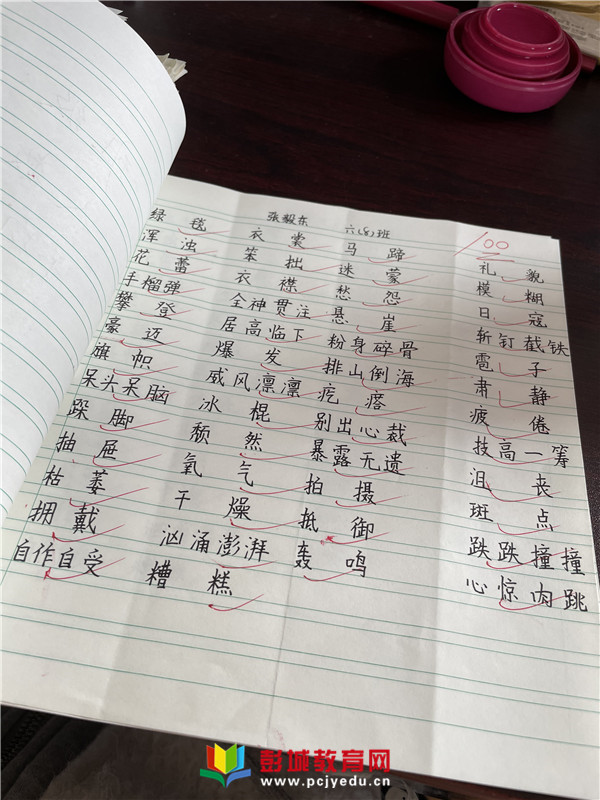 张毅东 六(8)班 100
绿毯 衣裳 马蹄 礼貌
浑浊 笨拙 迷蒙 模糊
花蕾 衣襟 愁怨 日寇
手榴弹 全神贯注 悬崖 斩钉截铁
攀登 居高临下 粉身碎骨 雹子
豪迈 爆发 排山倒海 肃静
旗帜 威风凛凛 疙瘩 疲倦
呆头呆脑 冰棍 别出心裁 技高一筹
跺脚 颓然 暴露无遗 沮丧
抽屉 氧气 拍摄 斑点
枯萎 干燥 抵御 跌跌撞撞
拥戴 汹涌澎湃 轰鸣 心惊肉跳
自作自受 糟糕
彭城教育网
www.pcjyedu.cn